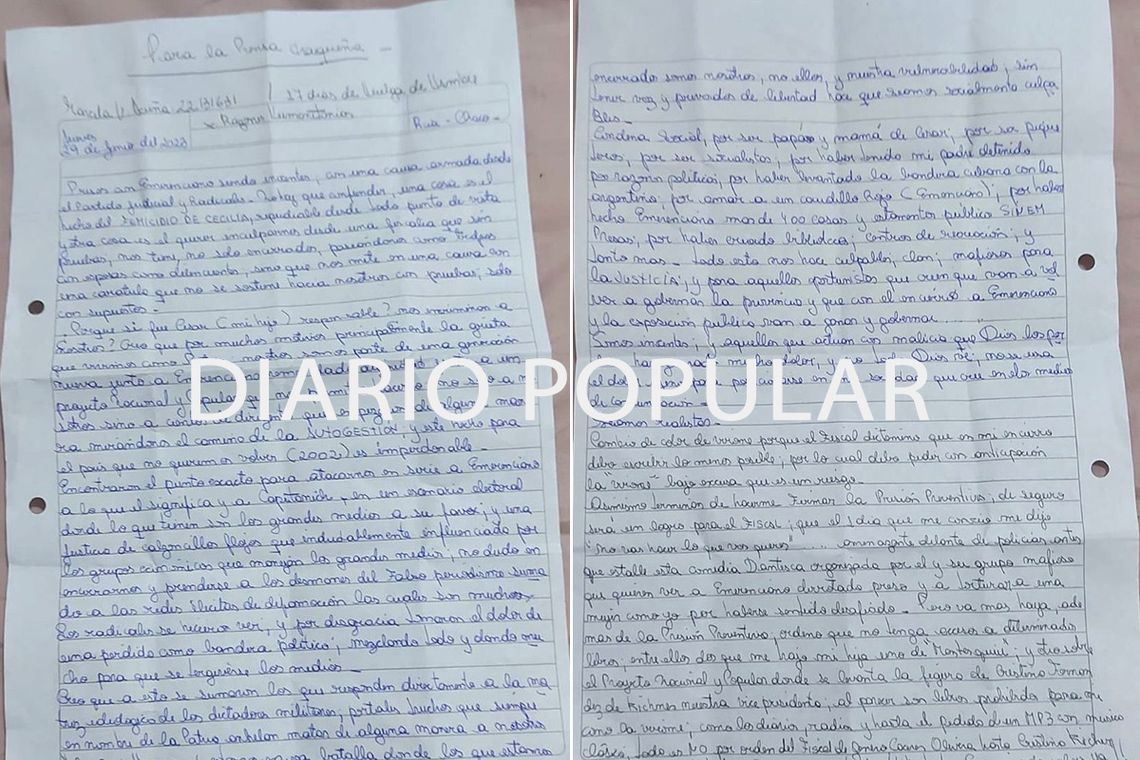 Para la Prensa chaqueña -
Marcela V. Acuña 22.131.631 / 17 dias de Huelga de Hambre
x Razones Humanitarias
Rcia - Chaco -
Jueves
29 de Junio del 2023
Presos con Emerenciano siendo inocentes, con una causa armada desde
el Partido Judicial y Radicales. Hay que entender, una cosa es el
hecho del FEMICIDIO DE CECILIA, repudiable desde todo punto de vista
y otra cosa es el querer inculparnos desde una fiscalia que sin
pruebas, nos tiene no solo encerrados, paseandonos como trofeos
con esposas como delincuentes, sino que nos mete en una causa con
una caratula que no se sostiene hacia nosotros con pruebas, solo
con supuestos.-
- Porque si fue Cesar (mi hijo) responsable? nos incriminan a
nosotros? Creo que por muchos motivos principalmente la grieta
que vivimos como nosotros somos parte de una generación
nueva junto a
proyecto Nacional y Popular que
sino a cientos de dirigentes que
ra mirandora el camino de la AUTOGESTIÓN, y este hecho para
el pais que no queremos volver (2002) es imperdonable -
Encontraron el punto exacto para atacarnos en serie a Emerenciano
a lo que el significa y a Capitanich, en un escenario electoral
donde lo que tienen son los grandes medios a su favor; y una
Justicia de calzoncillos flojos que indudablemente influenciado por
los grupos económicos que manejan los grandes medios; no dudo en
encerrarnos y prenderse a los desmanes del Falso periodismo suma
do a las redes ilicitas de difamación las cuales son muchas,
Los radicales se hicieron ver, y por desgracia tomaron el dolor de
una perdida como bandera politica, mezclando todo y dando mu
cho para que se tergiverse los medios -
Creo que a esto se sumaron los que responden directamente a la ma
triz ideologica de los dictadores militares, portales truchos que siempre
en nombre de la Patria anhelan matar de alguna manera a nosotros
batalla donde los que estamos
encerrados somos nosotros, no ellos, y nuestra vulnerabilidad, sin
tener voz y privados de libertad hace que seamos socialmente culpa
bles -
Condena Social, por ser papás y mamá de Cesar, por ser pique
teros, por ser socialistas, por haber tenido mi padre detenido
por razones politicas, por haber levantado la bandera cubana con la
argentina, por amar a un caudillo Rojo (Emerenciano); por haber
hecho Emerenciano mas de 400 casas y estamentos público SIN EM
Presas, por haber creado bibliotecas; centros de recreación; y
tanto mas - todo esto nos hace culpables, clan; mafiosos para
la JUSTICIA; y para aquellos oportunistas que creen que van a vol
ver a gobernar la provincia y que con el encierro a Emerenciano
y la exposición publica van a ganar y gobernar ........
Somos inocentes; y aquellos que actuan con malicia que Dios los per
done hay mucho dolor, y no todo Dios ve; no se usa
el dolor para posicionarse en una sociedad que cree en los medios
de comunicación -
Seamos realistas -
Cambio de color de birome porque el Fiscal dictamino que en mi encierro
debo escribir lo menos posible; por lo cual debo pedir con anticipación
la "birome" bajo excusa que es un riesgo -
Asimismo terminan de hacerme Firmar la Prisión Preventiva; de seguro
será un logro para el Fiscal; que el 1 dia que me conocio me dijo
"no vas hacer lo que vos queres" ..... amenazante delante de policias antes
que estalle esta comedia Dantesca organizada por el y su grupo mafioso
que quieren ver a Emerenciano derrotado preso y a torturar a una
mujer como yo por haberse sentido desafiado - Pero va mas haya, ade
mas de la Prisión Preventiva, ordeno que no tenga acceso a determinado
libros; entre ellos dos que me trajo mi hija uno de "Montesquiu"; y otro sobre
el Proyecto Nacional y Popular donde se levanta la figura de Cristina Fernan
dez de Kirchner nuestra vice presidenta, al parecer son libros prohibido para mi
como la birome; como los diarios, radios y hasta el pedido de un MP3 con musica
clásica, todo es NO por orden del Fiscal de Genero Caceres Olivera
DIARIO POPULAR